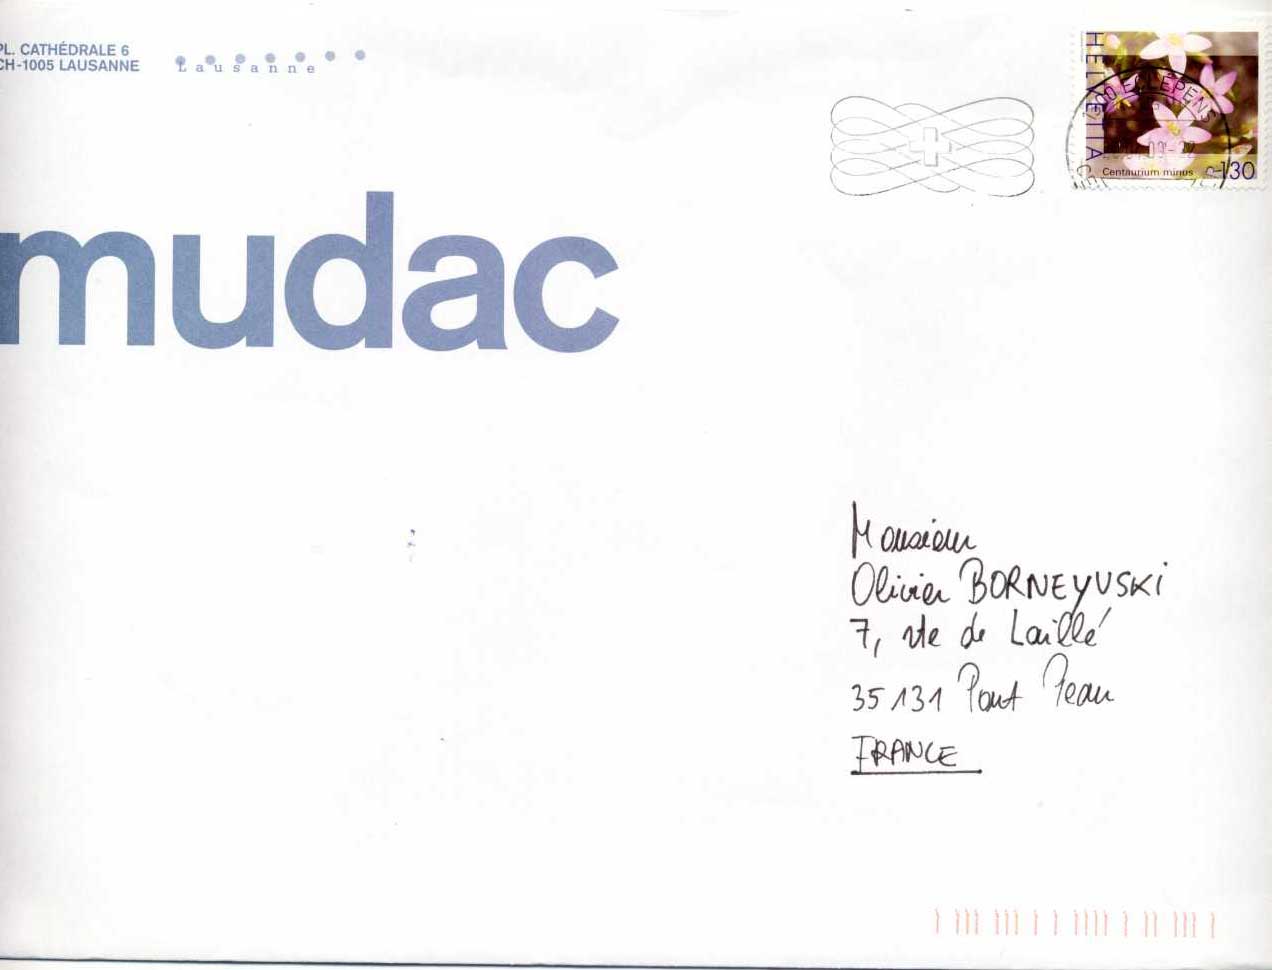 PL. CATHÉDRALE 6
CH-1005 LAUSANNE
Lausanne
HELVETIA
ECLÉPENS
Centaurium minus
130
mudac
Monsieur
Olivier BORNEYUSKi
7, rte de Laillé
35131 Pont Péan
FRANCE